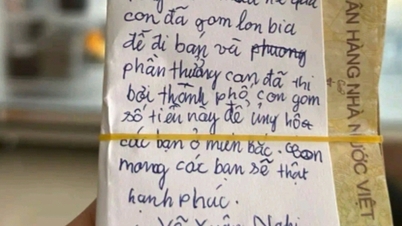 con đã gom lon bia
để đi bán và phương
phần thưởng con đã thi
bơi thành phố, con gom
số tiền này để ủng hộ
các bạn ở miền bắc. Con
mong các bạn sẽ thật
hạnh phúc.
NGÂN HÀNG NHÀ NƯỚC VIỆT